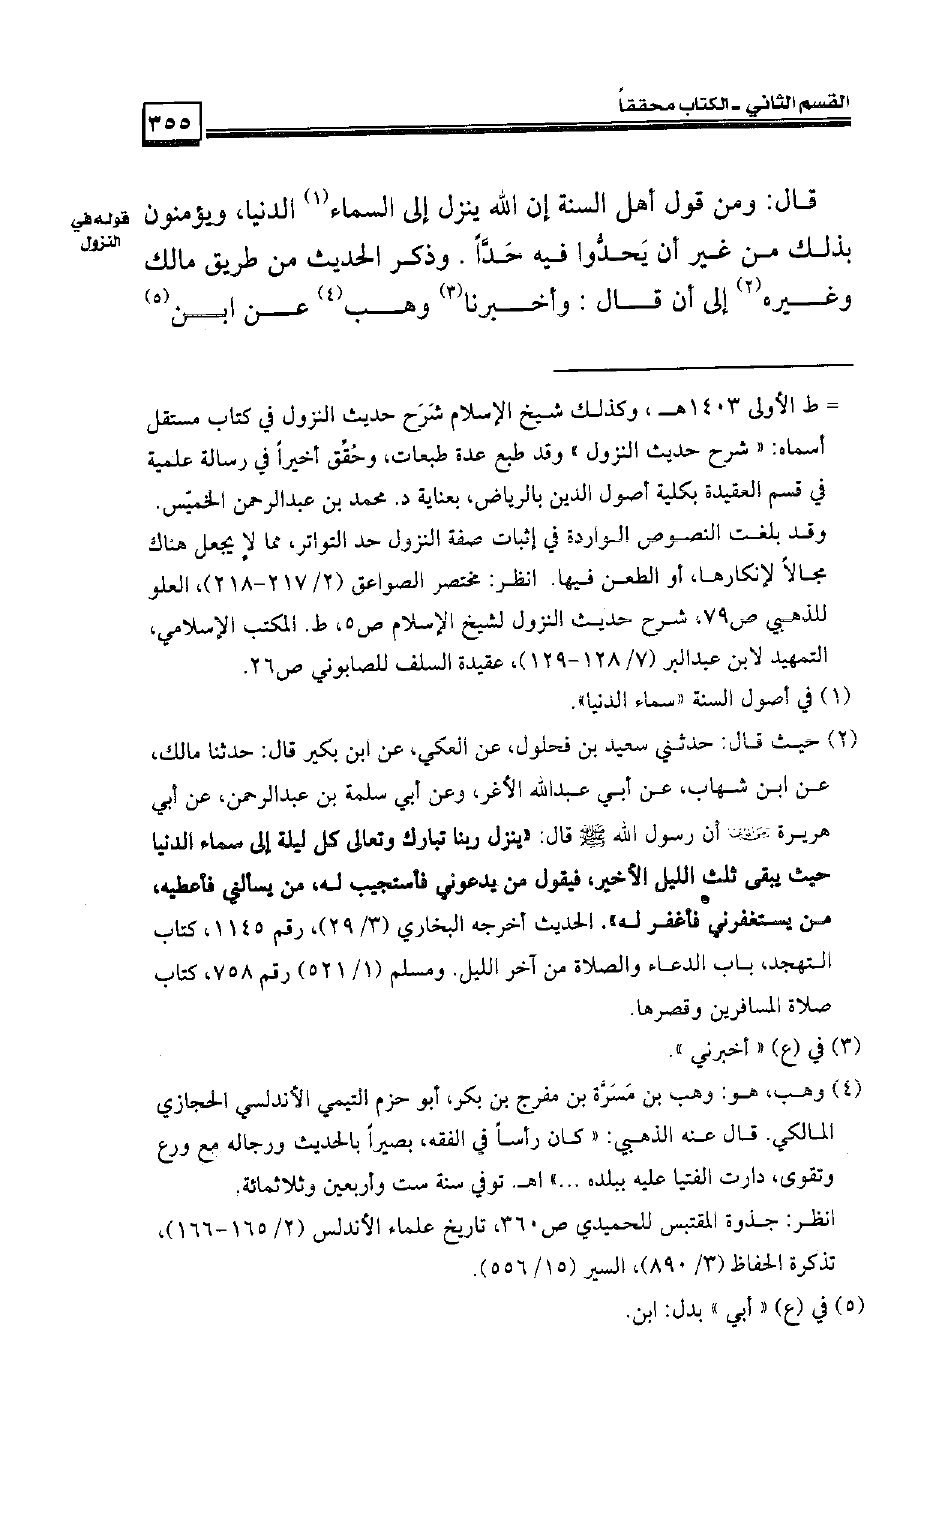 القسم الثاني - الكتاب محققاً
٣٥٥
قال: ومن قول أهل السنة إن الله ينزل إلى السماء(١) الدنيا، ويؤمنون
قوله في
النزول
بذلك من غير أن يَحدُّوا فيه حَدَّاً . وذكر الحديث من طريق مالك
وغيره(٢) إلى أن قال : وأخبرنا(٣) وهب(٤) عن ابن(٥)
= ط الأولى ١٤٠٣هـ ، وكذلك شيخ الإسلام شَرَح حديث النزول في كتاب مستقل
أسماه: « شرح حديث النزول » وقد طبع عدة طبعات، وحُقِّق أخيراً في رسالة علمية
في قسم العقيدة بكلية أصول الدين بالرياض، بعناية د. محمد بن عبدالرحمن الخميّس.
وقد بلغت النصوص الواردة في إثبات صفة النزول حد التواتر، مما لا يجعل هناك
مجالاً لإنكارها، أو الطعن فيها. انظر: مختصر الصواعق (٢/ ٢١٧-٢١٨)، العلو
للذهبي ص٧٩، شرح حديث النزول لشيخ الإسلام ص٥، ط. المكتب الإسلامي،
التمهيد لابن عبدالبر (٧/ ١٢٨-١٢٩)، عقيدة السلف للصابوني ص٢٦.
(١) في أصول السنة «سماء الدنيا».
(٢) حيث قال: حدثني سعيد بن فحلول، عن العكي، عن ابن بكير قال: حدثنا مالك،
عن ابن شهاب، عن أبي عبدالله الأغر، وعن أبي سلمة بن عبدالرحمن، عن أبي
هريرة رضي الله عنه أن رسول الله ﷺ قال: «ينزل ربنا تبارك وتعالى كل ليلة إلى سماء الدنيا
حيث يبقى ثلث الليل الأخير، فيقول من يدعوني فأستجيب له، من يسألني فأعطيه،
من يستغفرني فأغفر له». الحديث أخرجه البخاري (٣/ ٢٩)، رقم ١١٤٥، كتاب
التهجد، باب الدعاء والصلاة من آخر الليل. ومسلم (١/ ٥٢١) رقم ٧٥٨، كتاب
صلاة المسافرين وقصرها.
(٣) في (ع) « أخبرني ».
(٤) وهب، هو: وهب بن مَسَرَّة بن مفرج بن بكر، أبو حزم التيمي الأندلسي الحجازي
المالكي. قال عنه الذهبي: « كان رأساً في الفقه، بصيراً بالحديث ورجاله مع ورع
وتقوى، دارت الفتيا عليه ببلده ...» اهـ. توفي سنة ست وأربعين وثلاثمائة.
انظر: جذوة المقتبس للحميدي ص٣٦٠، تاريخ علماء الأندلس (٢/ ١٦٥-١٦٦)،
تذكرة الحفاظ (٣/ ٨٩٠)، السير (١٥/ ٥٥٦).
(٥) في (ع) « أبي » بدل: ابن.